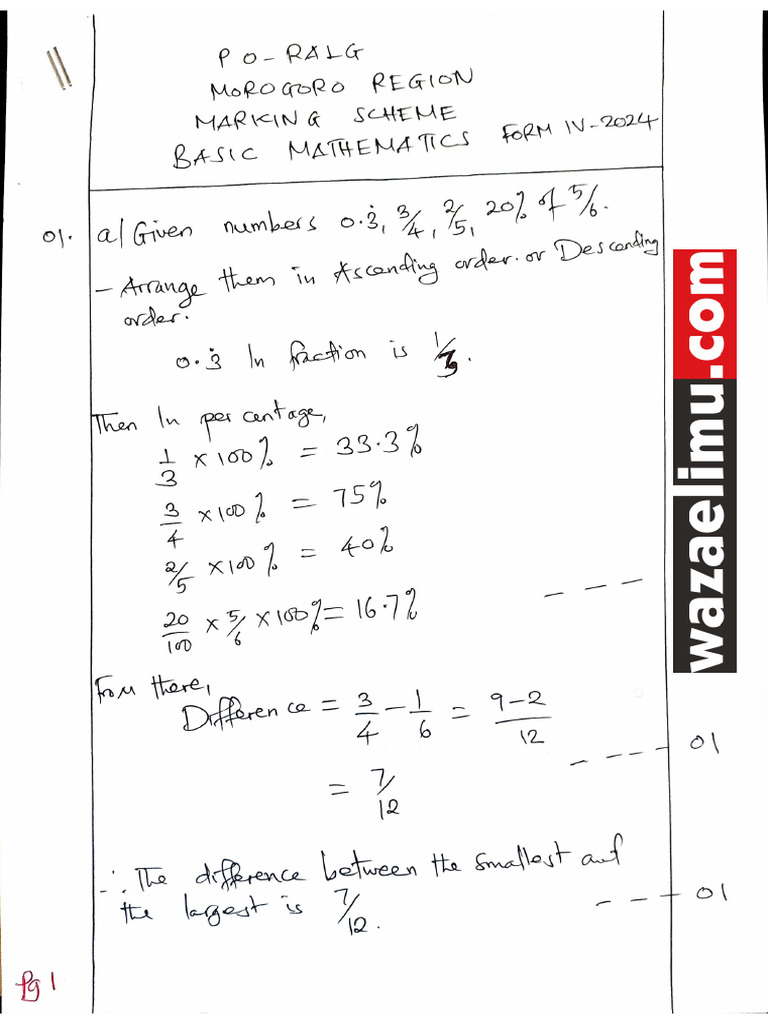 PO-RALG
MOROGORO REGION
MARKING SCHEME
BASIC MATHEMATICS FORM IV-2024
01. a/ Given numbers 0.3̇, 3/4, 2/5, 20% of 5/6.
- Arrange them in Ascending order. or Descending
order.
0.3̇ In fraction is 1/3.
Then In percentage,
1/3 × 100% = 33.3%
3/4 × 100% = 75%
2/5 × 100% = 40%
20/100 × 5/6 × 100% = 16.7%
From there,
Difference = 3/4 - 1/6 = 9-2/12
01
= 7/12
∴ The difference between the smallest and
the largest is 7/12.
01
Pg 1
wazaelimu.com